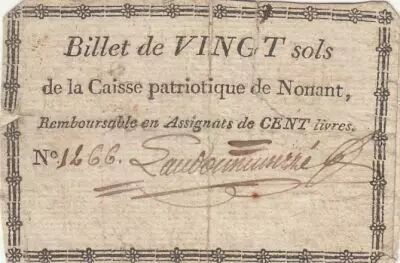 Billet de VINGT sols
de la Caisse patriotique de Nonant,
Remboursable en Assignats de CENT livres.
No 1266.